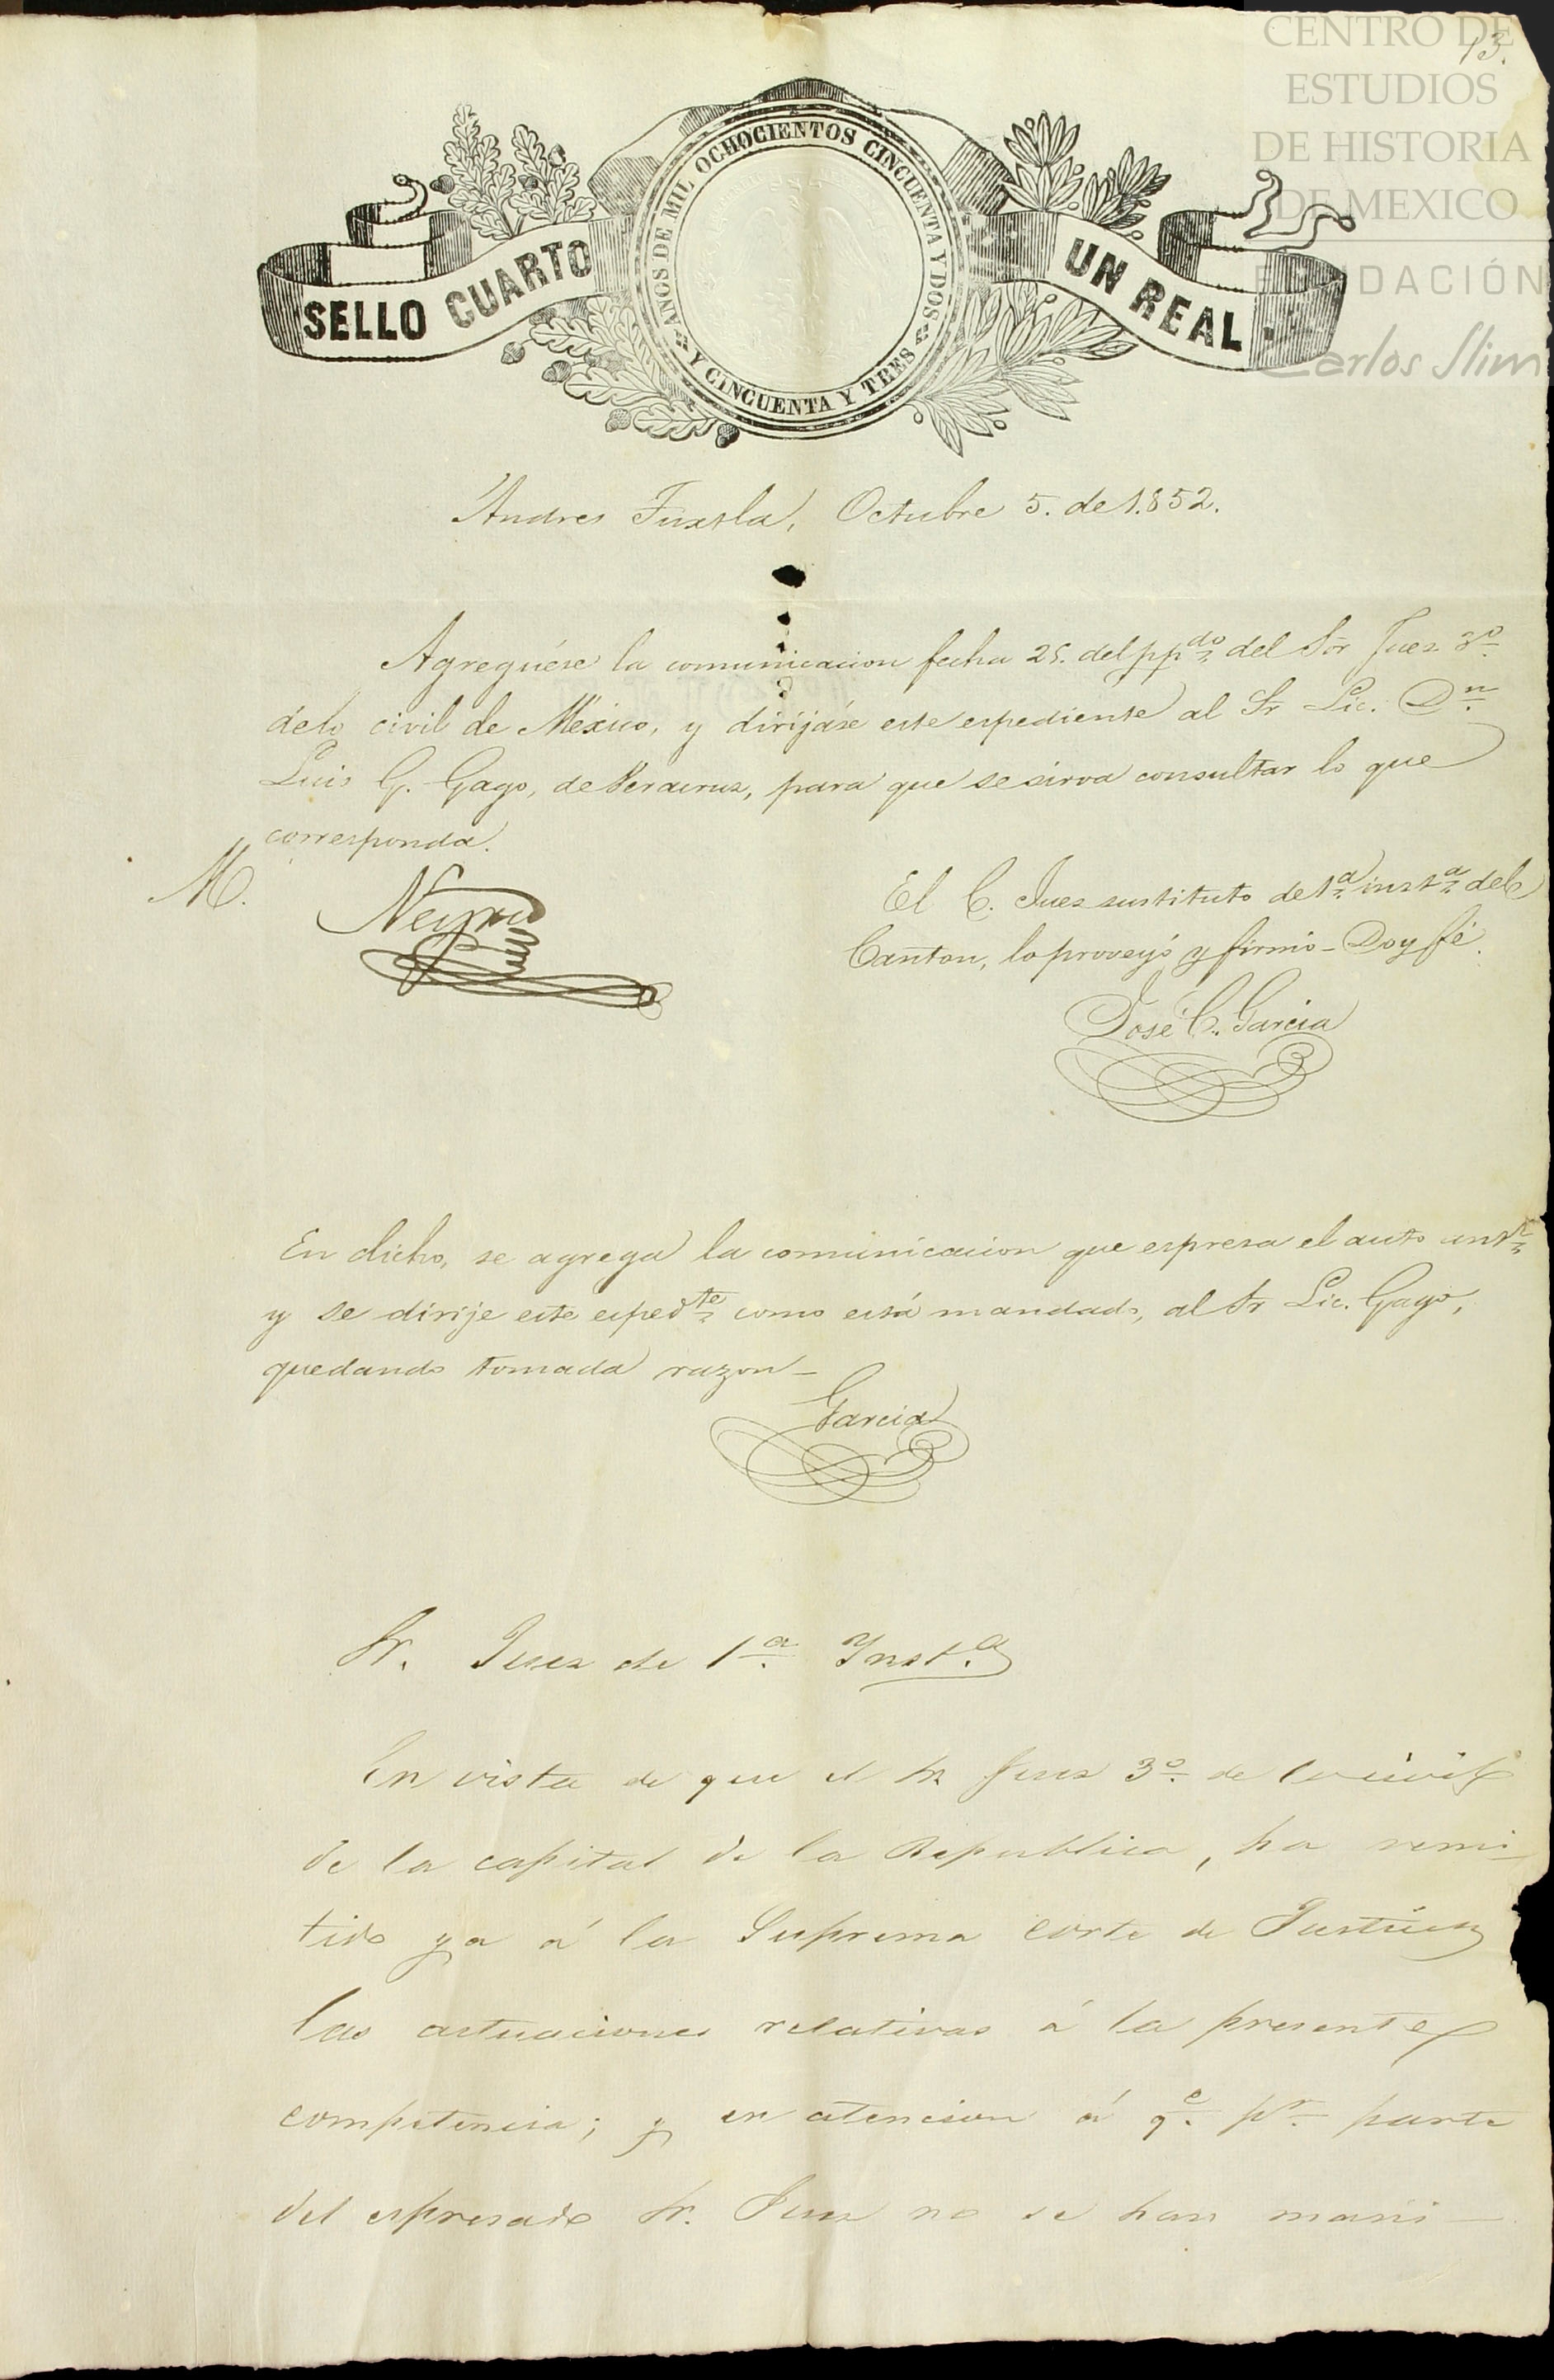 CENTRO DE
ESTUDIOS
DE HISTORIA
DE MEXICO
FUNDACIÓN
Carlos Slim
13.
SELLO CUARTO
AÑOS DE MIL OCHOCIENTOS CINCUENTA Y DOS
Y CINCUENTA Y TRES
UN REAL.
Andres Tuxtla, Octubre 5. de 1.852.
Agreguése la comunicacion fecha 25. del pp.do del Sor Juez 3o.
de lo civil de México, y dirijáse este espediente al Sr Lic. Dn.
Luis G. Gago, de Veracruz, para que se sirva consultar lo que
corresponda.
M.
Neyra
El C. Juez sustituto de 1a. insta. del
Canton, lo proveyó y firmó - Doy fé.
José C. Garcia
En dicho, se agrega la comunicacion que espresa el auto antr.
y se dirije este espedte. como está mandado, al Sr Lic. Gago,
quedando tomada razon -
Garcia
Sr. Juez de 1a. Inst.a
En vista de que el Sr. Juez 3o. de lo civil
de la capital de la Republica, ha remi-
tido ya á la Suprema corte de Justicia
las actuaciones relativas á la presente
competencia; y en atencion á qe. pr. parte
del espresado Sr. Juez no se han mani-